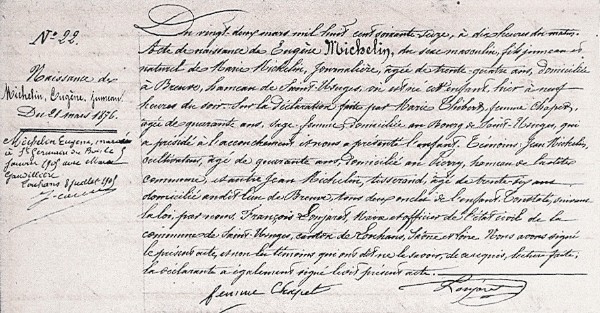 N° 22.
Naissance de
Michelin, Eugène, jumeau.
Du 21 mars 1876.
Michelin Eugène, marié
à St Germain du Bois le
janvier 1905 avec Marie
Louhans 8 juillet 1905
Du vingt deux mars mil huit cent soixante seize, à dix heures du matin.
Acte de naissance de Eugène Michelin, du sexe masculin, fils jumeau et
naturel de Marie Michelin, Journalière, âgée de trente quatre ans, domiciliée
à Breuve, hameau de Saint-Usuges, où est né cet enfant, hier à neuf
heures du soir. Sur la déclaration faite par Marie femme Chapet,
âgée de quarante ans, sage-femme, domiciliée au Bourg de Saint-Usuges, qui
a présidé à l'accouchement et nous a présenté l'enfant. Témoins: Jean Michelin,
cultivateur, âgé de quarante ans, domicilié au hameau de la dite
commune, et autre Jean Michelin, tisserand, âgé de trente six ans
domicilié audit lieu de Breuve, tous deux oncles de l'enfant. Constaté, suivant
la loi, par nous, François Maire et officier de l'état civil de la
commune de Saint-Usuges, canton de Louhans, Saône et Loire. Nous avons signé
le présent acte, et non les témoins qui ont dit ne le savoir, de ce requis, lecture faite,
la déclarante a également signé le dit présent acte.
femme Chapet